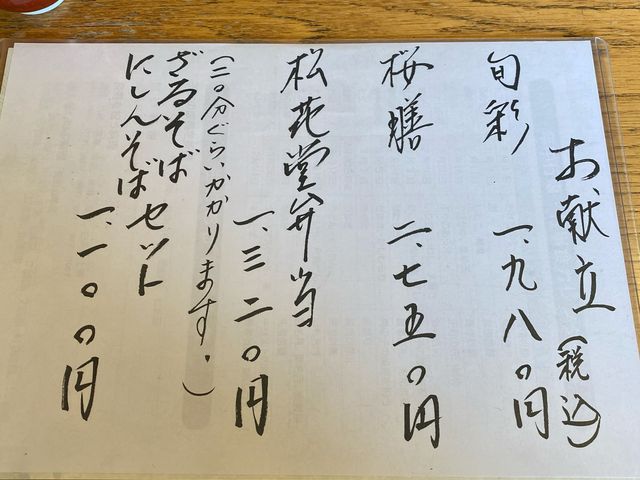 お献立(税込)
旬彩 一、九八〇円
桜膳 二、七五〇円
松花堂弁当
一、三二〇円
(二〇分ぐらいかかります。)
ざるそば
にしんそばセット
一、一〇〇円